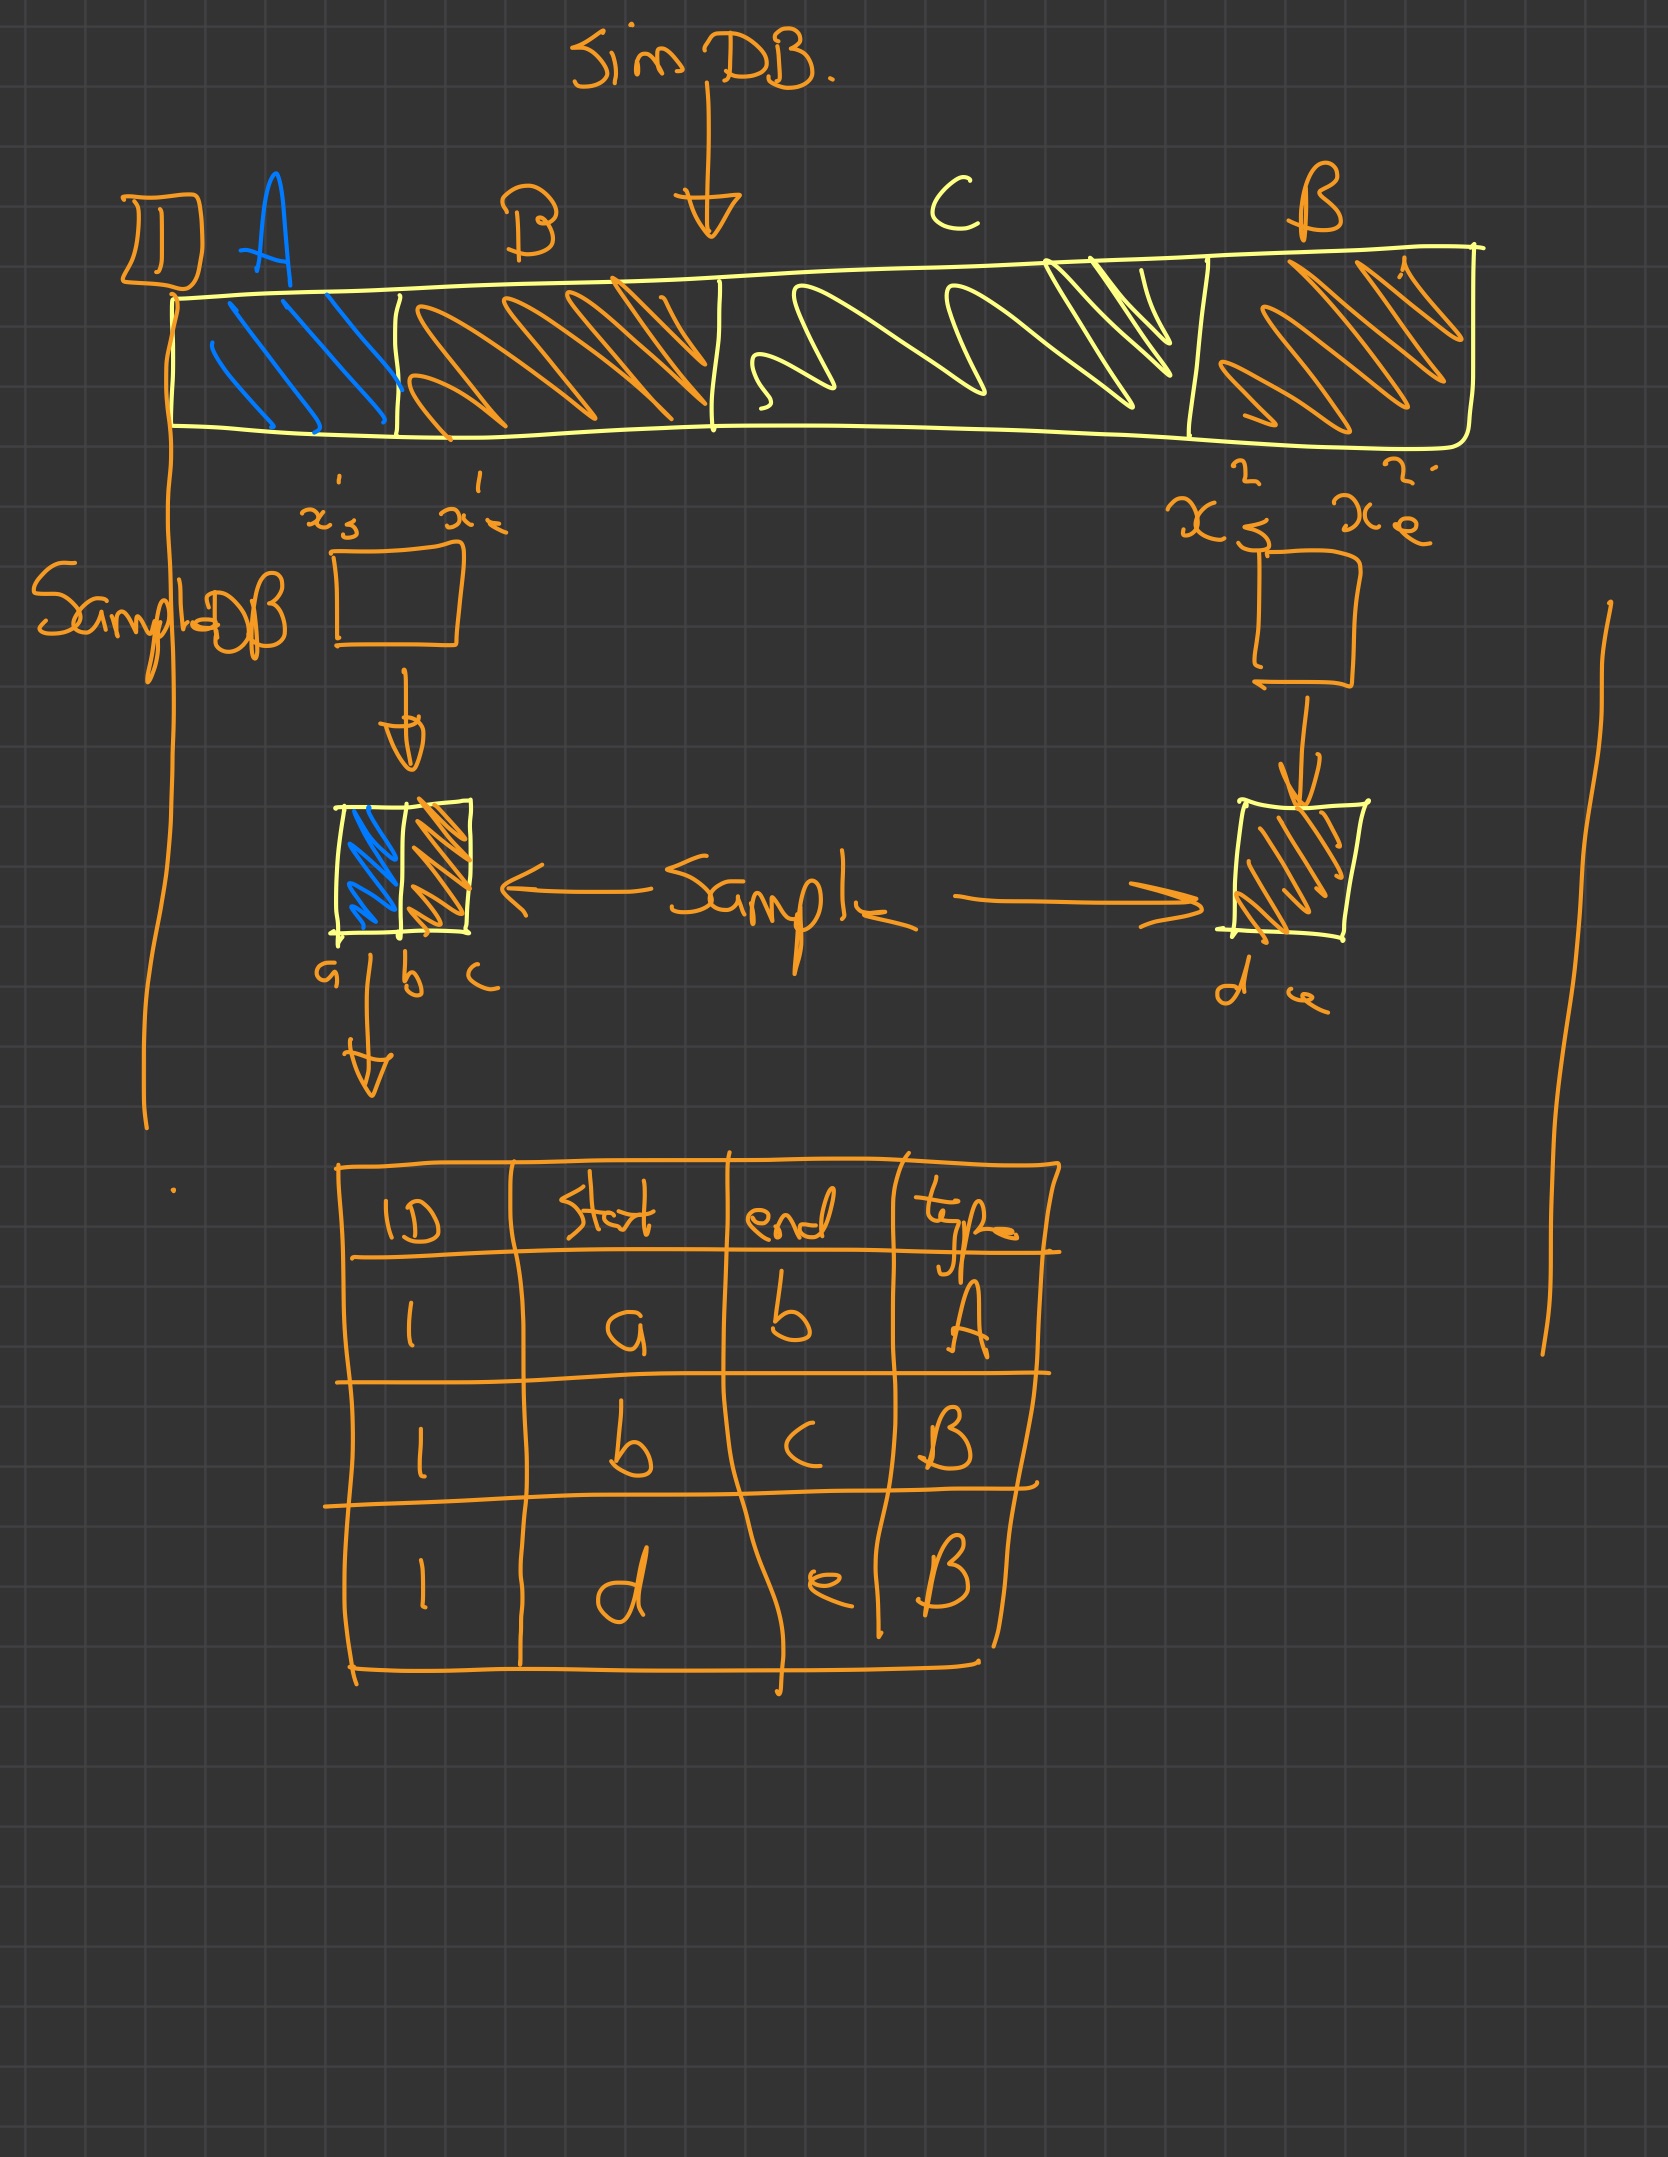 Sim DB.
D A B C B
x's x'e x²s x²e
SampleDB
Sample
a b c d e
ID start end type
1 a b A
1 b c B
1 d e B